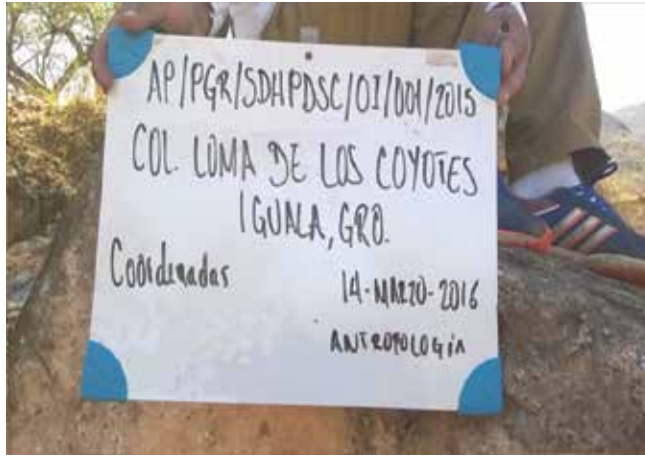 AP/PGR/SDHPDSC/OI/001/2015
COL. LOMA DE LOS COYOTES
IGUALA, GRO.
Coordenadas
14-MARZO-2016
ANTROPOLOGÍA